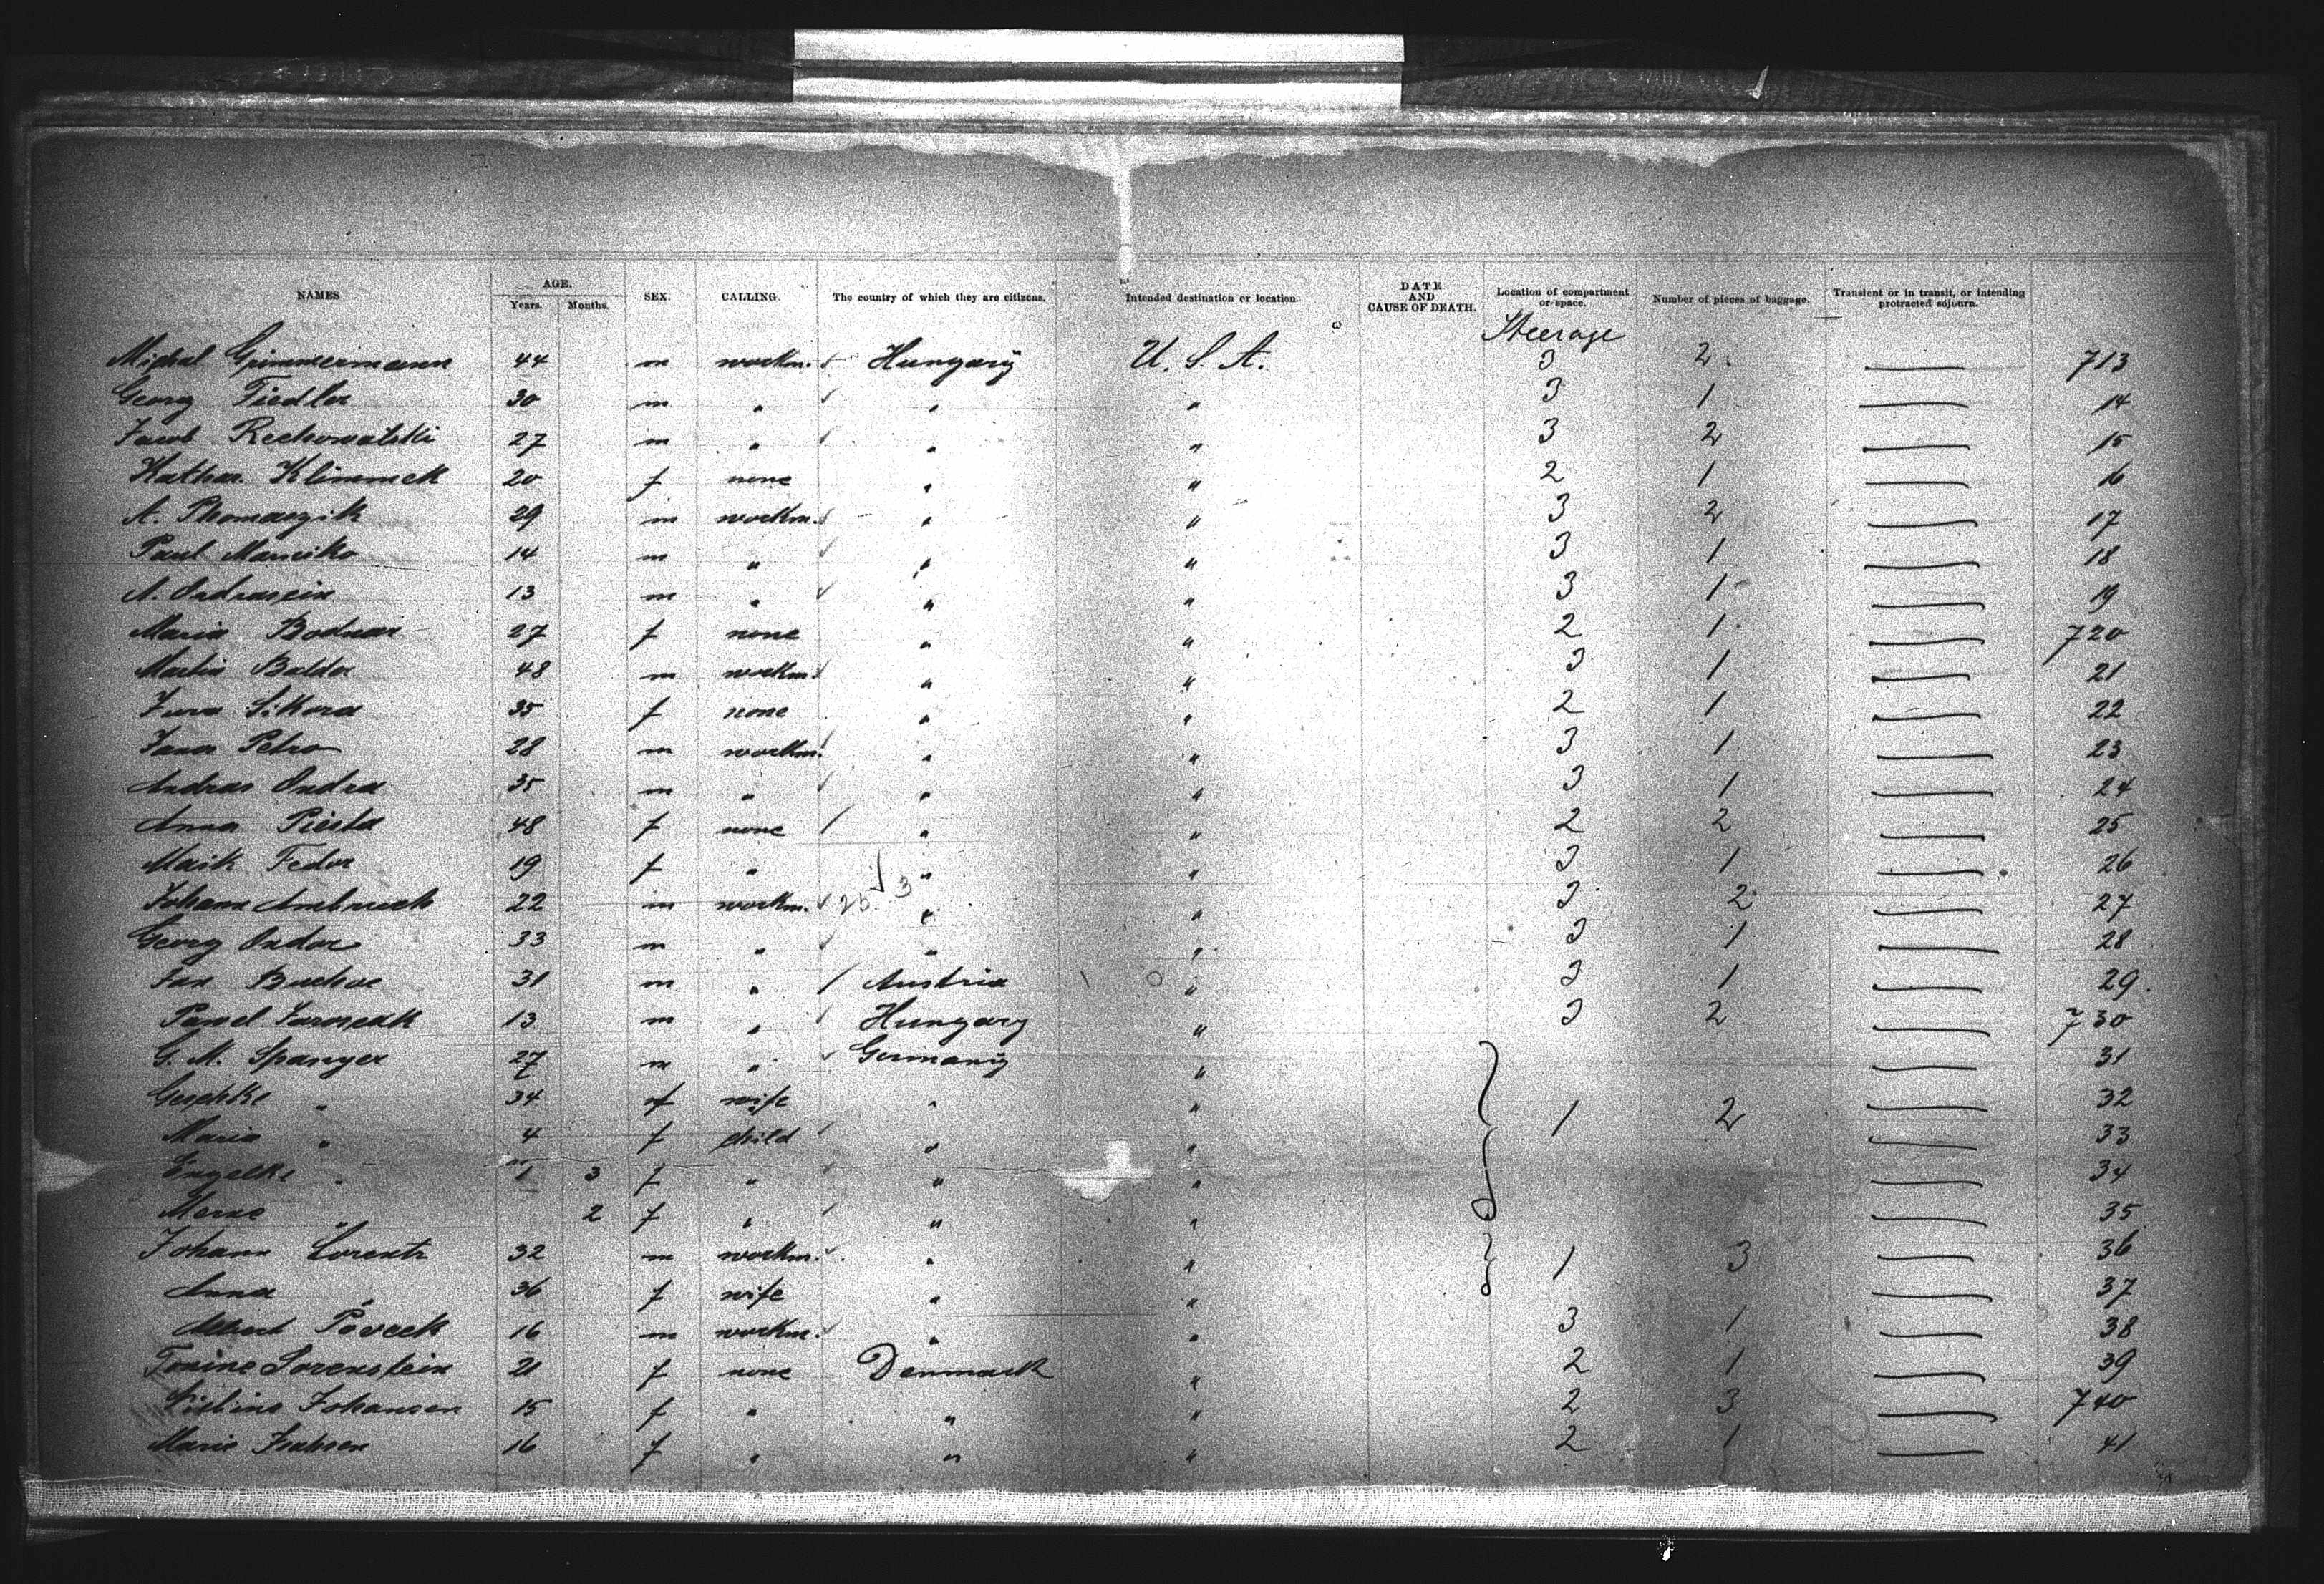 NAMES AGE. Years. Months. SEX. CALLING. The country of which they are citizens. Intended destination or location. DATE AND CAUSE OF DEATH. Location of compartment or space. Number of pieces of baggage. Transient or in transit, or intending protracted sojourn.
Steerage
Michal 44 m workm. Hungary U. S. A. 3 2 713
Georg Fiedler 30 m " " " 3 1 14
Jacob Rechowatski 27 m " " " 3 2 15
Kathar. Klimmek 20 f none " " 2 1 16
A. 29 m workm. " " 3 2 17
Paul 14 m " " " 3 1 18
A. 13 m " " " 3 1 19
Maria Bodnar 27 f none " " 2 1 720
Martin Balda 48 m workm. " " 3 1 21
Sikora 35 f none " " 2 1 22
Petro 28 m workm. " " 3 1 23
Andras Ondra 35 m " " " 3 1 24
Anna Piesta 48 f none " " 2 2 25
Fedor 19 f " " " 3 1 26
Johann 22 m workm. 25 3 " " 3 2 27
Georg 33 m " " " 3 1 28
Jan 31 m " Austria " 3 1 29.
13 m " Hungary " 3 2 730
G. M. Spanger 27 m " Germany " 31
Geschke " 34 f wife " " 1 2 32
Maria " 4 f child " " 33
Engelke " 1 3 f " " " 34
" 2 f " " " 35
Johann Lorentz 32 m workm. " " 1 3 36
Anna " 36 f wife " " 37
Albert 16 m workm. " " 3 1 38
Sorenstein 21 f none Denmark " 2 1 39
Johansen 15 f " " " 2 3 740
Marie 16 f " " " 2 1 41